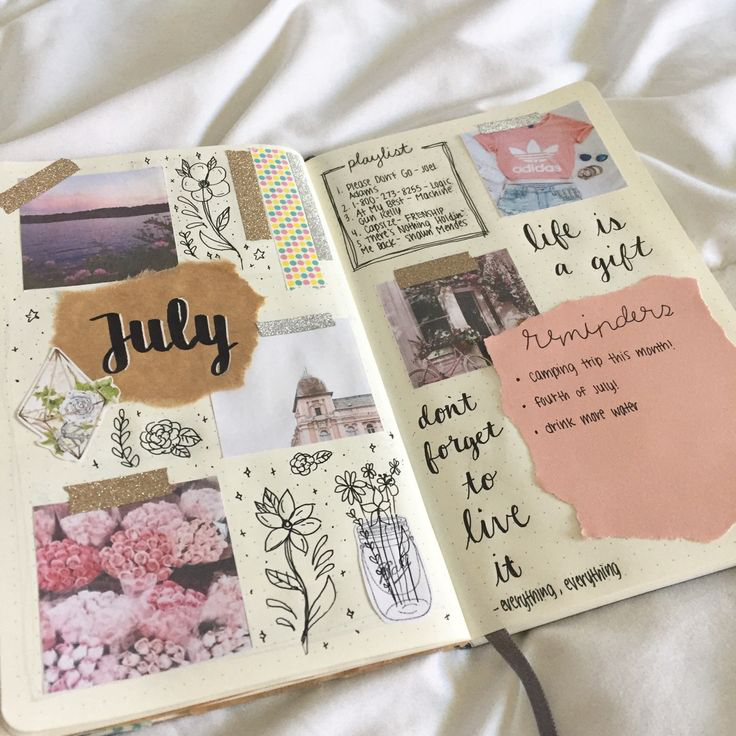 July
playlist
1. Please Don't Go - Joel
Adams
2. 1-800-273-8255 - Logic
3. At My Best - Machine
Gun Kelly
4. Capsize - FRENSHIP
5. There's Nothing Holdin'
Me Back - Shawn Mendes
adidas
life is
a gift
reminders
• camping trip this month!
• fourth of July!
• drink more water
don't
forget
to
live
it
- everything, everything